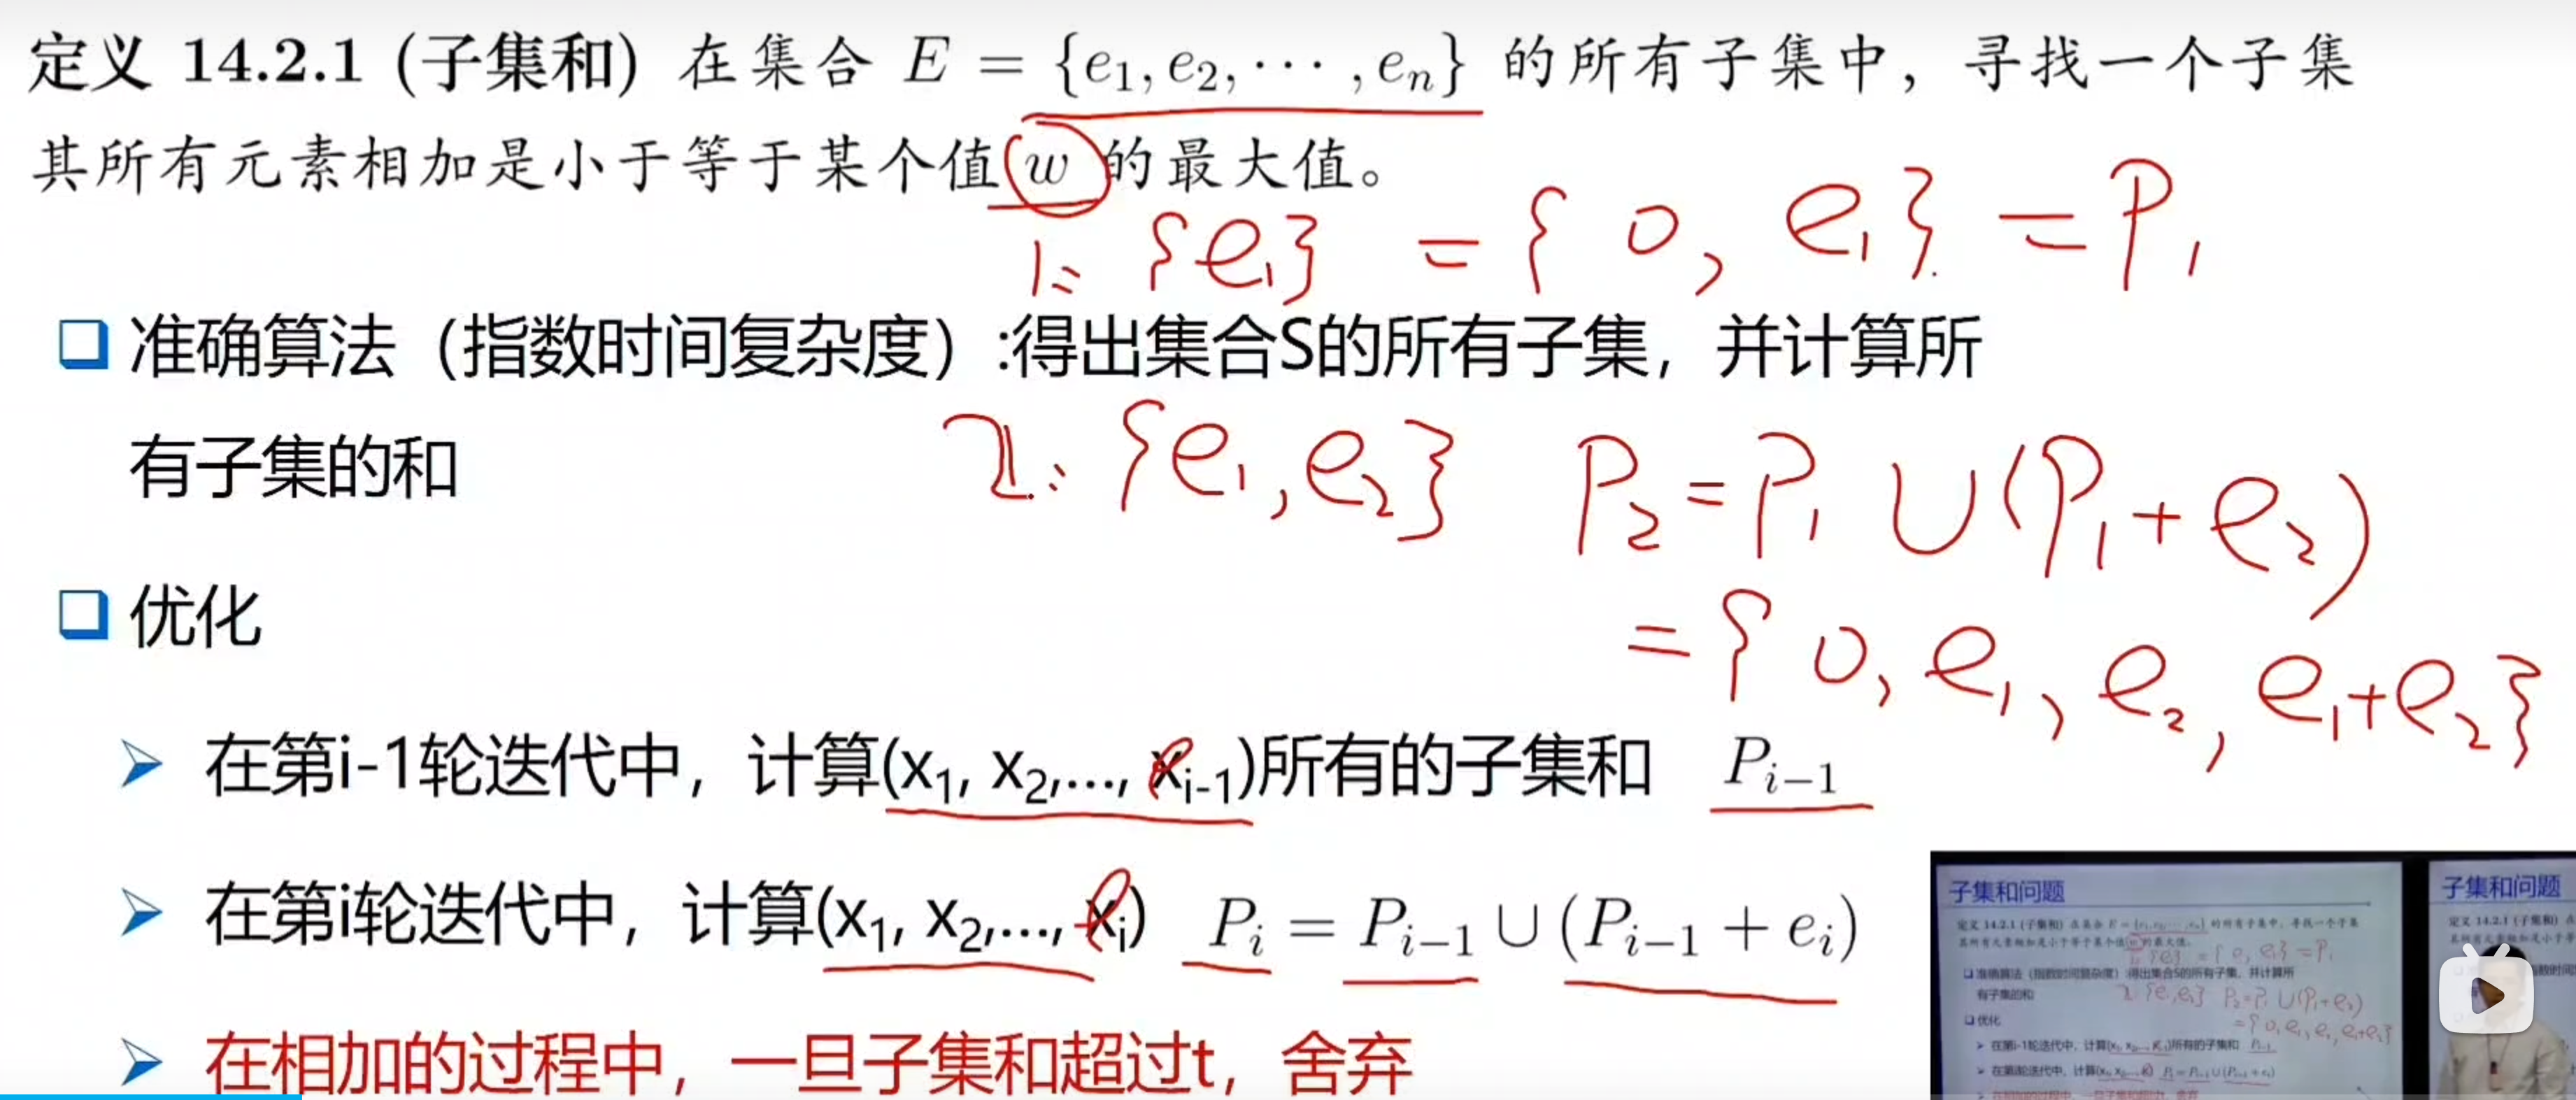 定义 14.2.1 (子集和) 在集合 E = {e₁, e₂, ⋯ , eₙ} 的所有子集中，寻找一个子集
其所有元素相加是小于等于某个值 w 的最大值。
1: {e₁} = { 0, e₁} = P₁
❑ 准确算法（指数时间复杂度）:得出集合S的所有子集，并计算所
有子集的和
2: {e₁, e₂} P₂ = P₁ ∪ (P₁ + e₂)
❑ 优化
= { 0, e₁, e₂, e₁+e₂}
➢ 在第i-1轮迭代中，计算(x₁, x₂,..., xᵢ₋₁)所有的子集和 Pᵢ₋₁
➢ 在第i轮迭代中，计算(x₁, x₂,..., xᵢ) Pᵢ = Pᵢ₋₁ ∪ (Pᵢ₋₁ + eᵢ)
➢ 在相加的过程中，一旦子集和超过t，舍弃
子集和问题
子集和问题